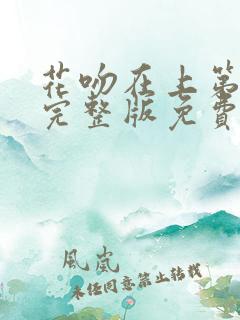 花吻在上第
完整版免费
風嵐
未经同意禁止转载